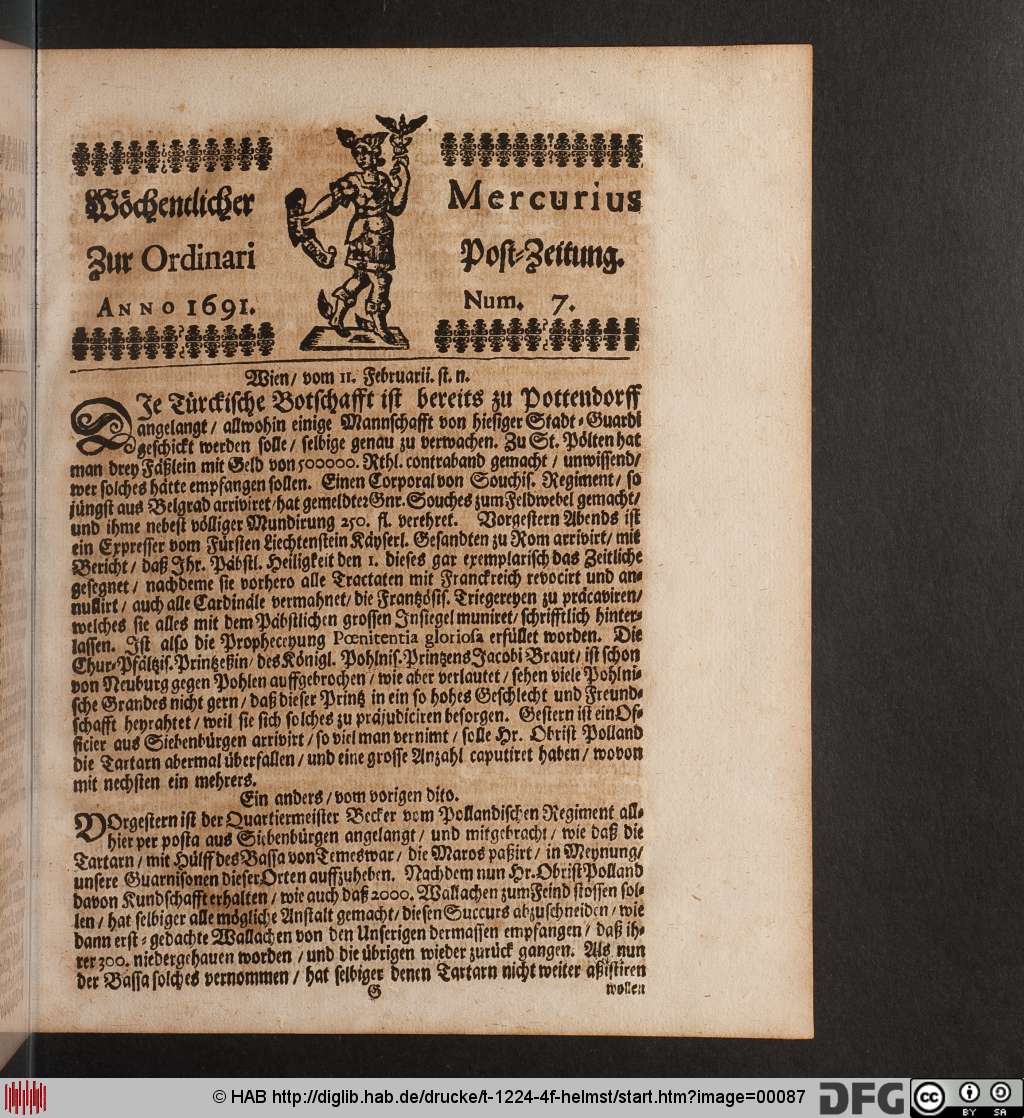 Wöchentlicher Mercurius
Zur Ordinari Post-Zeitung.
ANNO 1691. Num. 7.
Wien/ vom 11. Februarii. st. n.
DJe Türckische Botschafft ist bereits zu Pottendorff
angelangt/ allwohin einige Mannschafft von hiesiger Stadt-Guardi
geschickt werden solle/ selbige genau zu verwachen. Zu St. Pölten hat
man drey Fäßlein mit Geld von 500000. Rthl. contraband gemacht/ unwissend/
wer solches hätte empfangen sollen. Einen Corporal von Souchis. Regiment/ so
jüngst aus Belgrad arriviret/ hat gemeldter Gnr. Souches zum Feldwebel gemacht/
und ihme nebest völliger Mundirung 250. fl. verehret. Vorgestern Abends ist
ein Expresser vom Fürsten Liechtenstein Käyserl. Gesandten zu Rom arrivirt/ mit
Bericht/ daß Jhr. Päbstl. Heiligkeit den 1. dieses gar exemplarisch das Zeitliche
gesegnet/ nachdeme sie vorhero alle Tractaten mit Franckreich revocirt und an-
nullirt/ auch alle Cardinäle vermahnet/ die Frantzösis. Triegereyen zu präcaviren/
welches sie alles mit dem Päbstlichen grossen Insiegel muniret/ schrifftlich hinter-
lassen. Jst also die Propheceyung Pœnitentia gloriosa erfüllet worden. Die
Chur-Pfältzis. Printzeßin/ des Königl. Pohlnis. Printzens Jacobi Braut/ ist schon
von Neuburg gegen Pohlen auffgebrochen/ wie aber verlautet/ sehen viele Pohlni-
sche Grandes nicht gern/ daß dieser Printz in ein so hohes Geschlecht und Freund-
schafft heyrahtet/ weil sie sich solches zu präjudiciren besorgen. Gestern ist ein Of-
ficier aus Siebenbürgen arrivirt/ so viel man vernimt/ solle Hr. Obrist Polland
die Tartarn abermal überfallen/ und eine grosse Anzahl caputiret haben/ wovon
mit nechsten ein mehrers.
Ein anders/ vom vorigen dito.
VOrgestern ist der Quartiermeister Becker vom Pollandischen Regiment all-
hier per posta aus Siebenbürgen angelangt/ und mitgebracht/ wie daß die
Tartarn/ mit Hülff des Bassa von Temeswar/ die Maros paßirt/ in Meynung/
unsere Guarnisonen dieser Orten auffzuheben. Nachdem nun Hr. Obrist Polland
davon Kundschafft erhalten/ wie auch daß 2000. Wallachen zum Feind stossen sol-
len/ hat selbiger alle mögliche Anstalt gemacht/ diesen Succurs abzuschneiden/ wie
dann erst-gedachte Wallachen von den Unserigen dermassen empfangen/ daß ih-
rer 300. niedergehauen worden/ und die übrigen wieder zurück gangen. Als nun
der Bassa solches vernommen/ hat selbiger denen Tartarn nicht weiter aßistiren
G wollen
© HAB http://diglib.hab.de/drucke/t-1224-4f-helmst/start.htm?image=00087 DFG cc BY SA